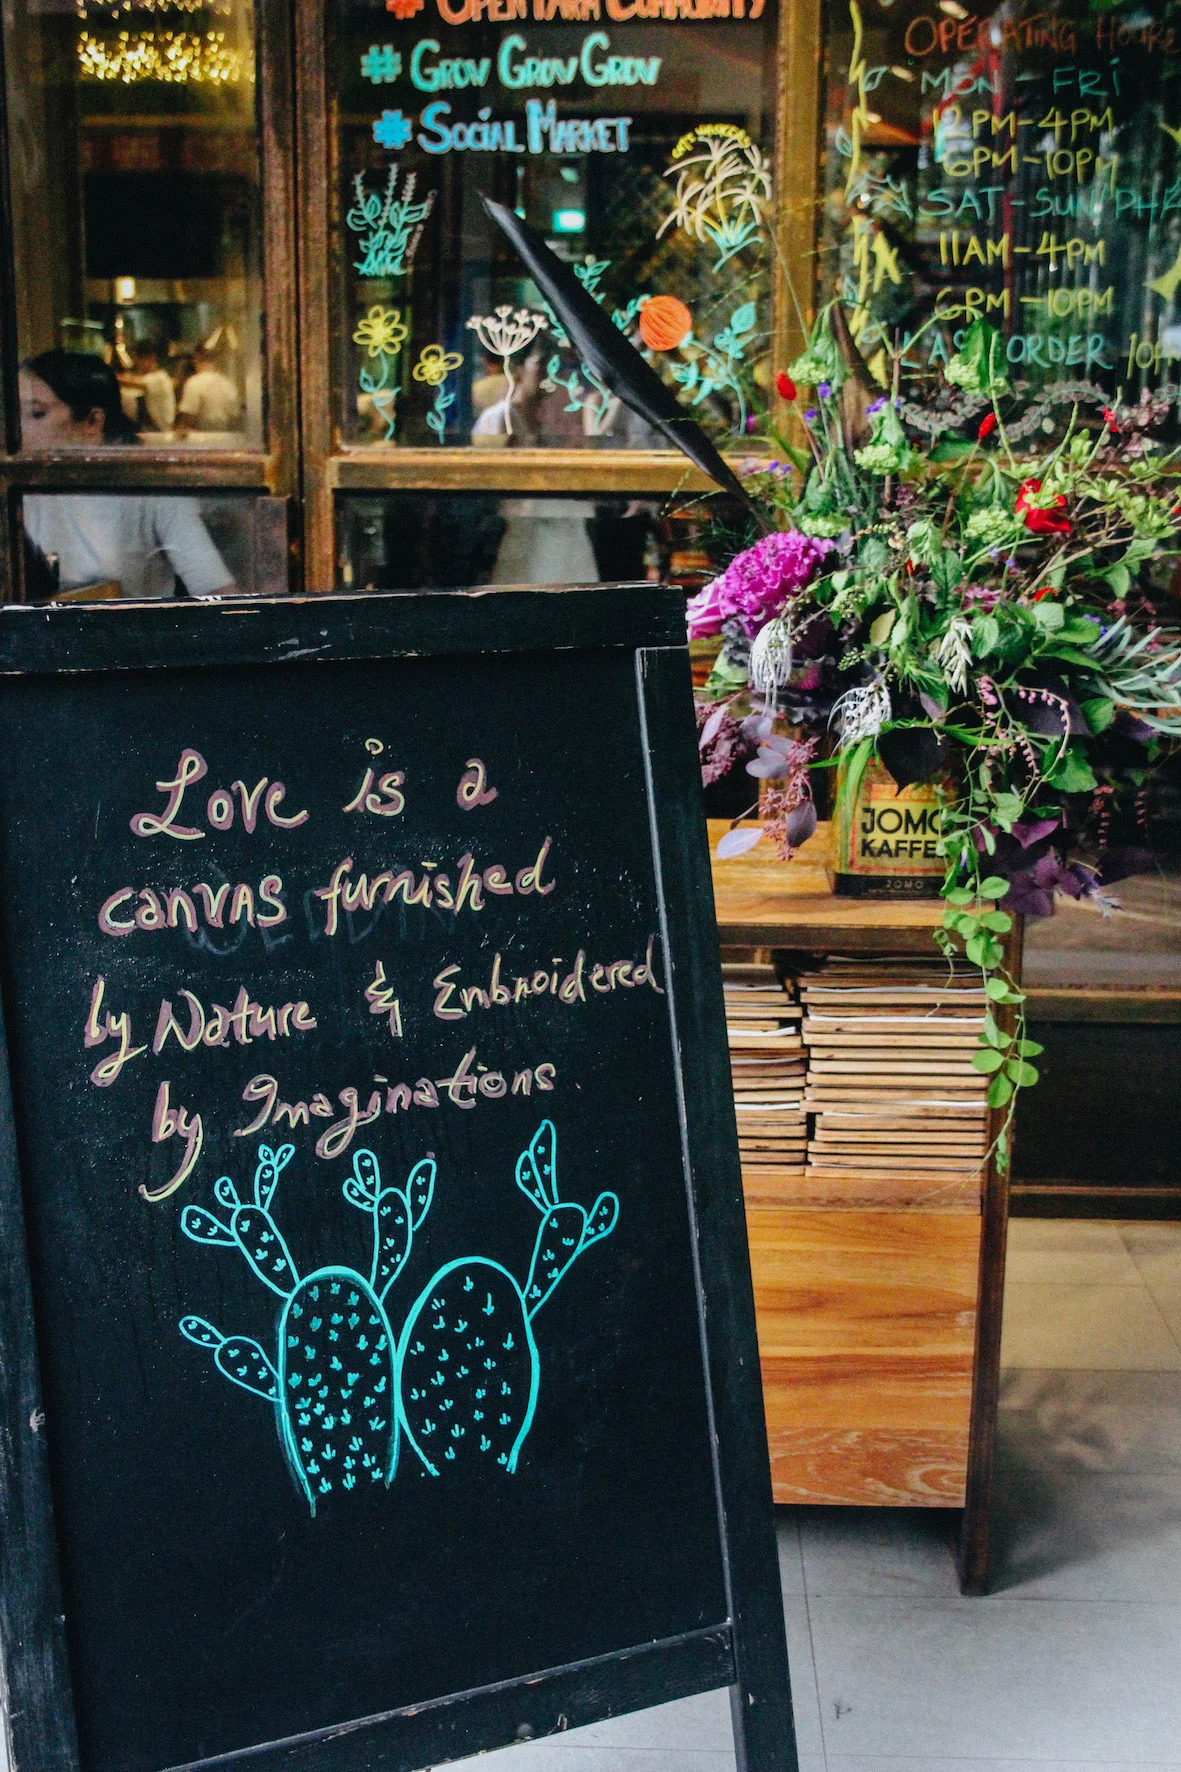 # OPEN FARM COMMUNITY
# GROW GROW GROW
# SOCIAL MARKET
OPERATING HOURS
MON - FRI
12PM-4PM
6PM-10PM
SAT-SUN/PH
11AM-4PM
6PM-10PM
LAST ORDER
Love is a
canvas furnished
by Nature & Embroidered
by Imaginations.
JOMO
KAFFE
JOMO